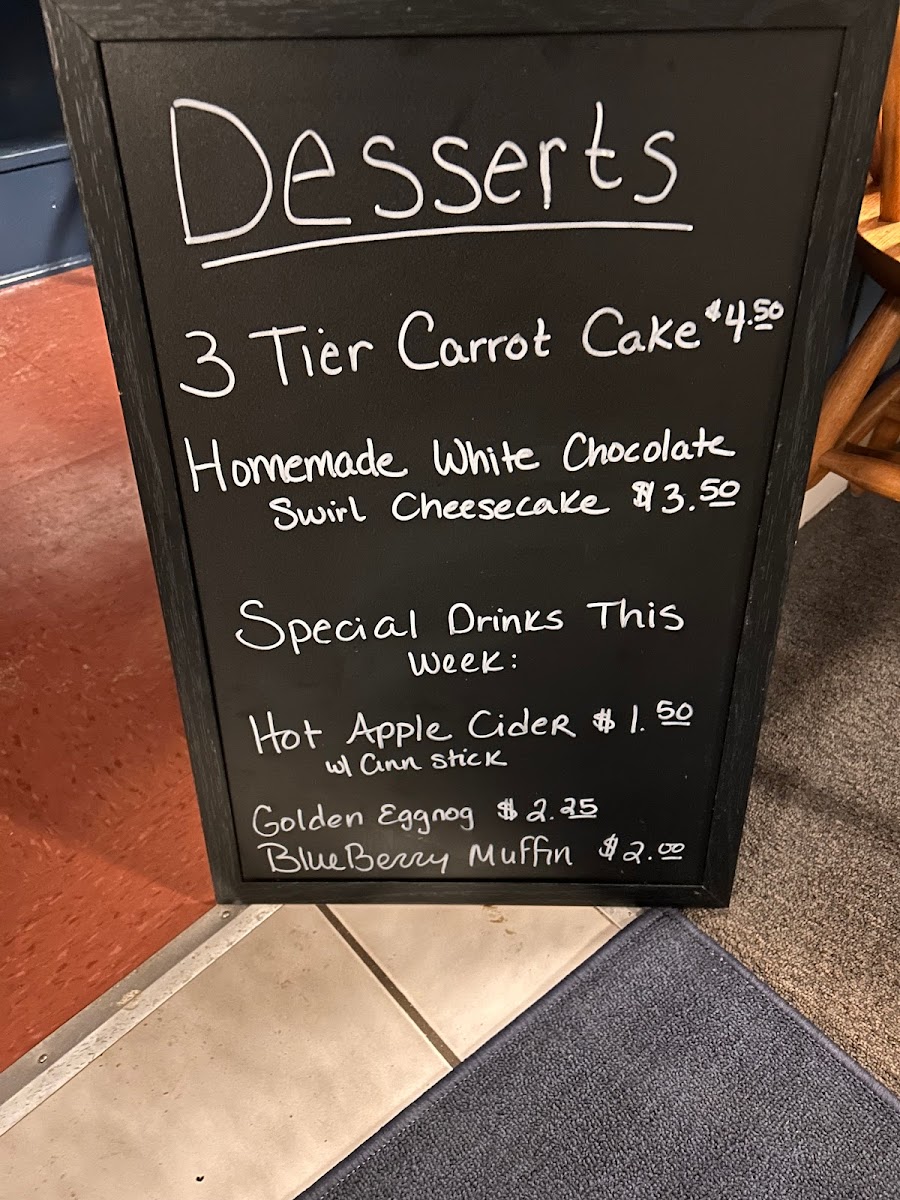 Desserts
3 Tier Carrot Cake $4.50
Homemade White Chocolate
Swirl Cheesecake $3.50
Special Drinks This
Week:
Hot Apple Cider $1.50
w/ Cinn stick
Golden Eggnog $2.25
BlueBerry Muffin $2.00